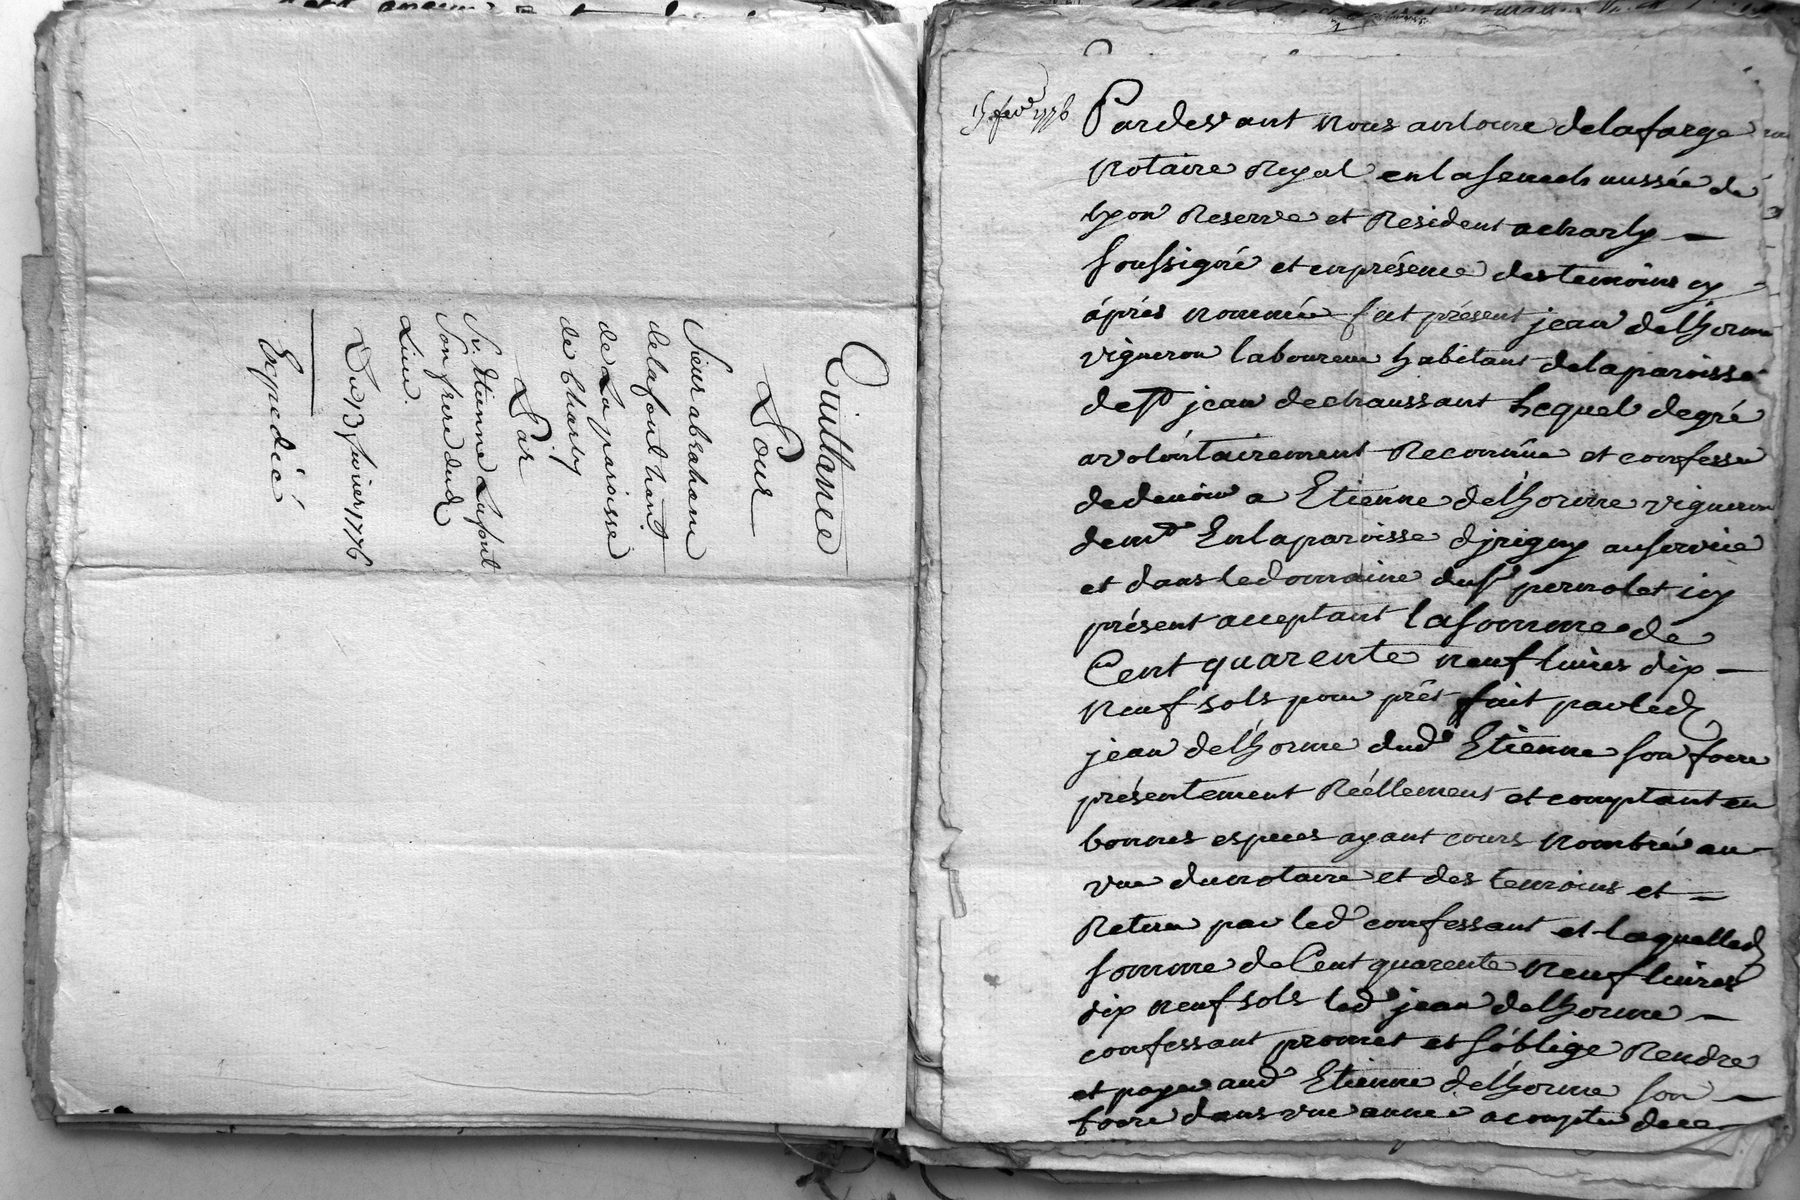 Quittance
Pour
Sieur abraham
delafont hant
de La paroisse
de Charly
Par
Sr. Etienne Lafont
Son frere dud
Lieu.
Du 13 fevrier 1776
Expedié
15 fevr 1776
Pardevant nous antoine delafarge
notaire Royal en la senechaussée de
lyon Reservé et Resident a charly
soussigné et en présence des temoins cy
áprés nommés fut présent jean delhorme
vigneron laboureur habitant de la paroisse
de st jean de chaussant Lequel de gré
a volontairement Reconnu et confessé
de devoir a Etienne delhorme vigneron
demt En la paroisse d'jrigny au service
et dans le domaine du sr pernolet icy
présent acceptant la somme de
Cent quarente neuf livres dix
neuf sols pour prét fait par led
jean delhorme dud Etienne son frere
présentement Réellement et comptant en
bonnes especes ayant cours nombré au
vue du notaire et des temoins et
Retiré par led confessant et laquelled
somme de Cent quarente neuf livres
dix neuf sols led jean delhorme
confessant promet et s'oblige Rendre
et payer aud Etienne delhorme son
frere dans une année a compter de ce